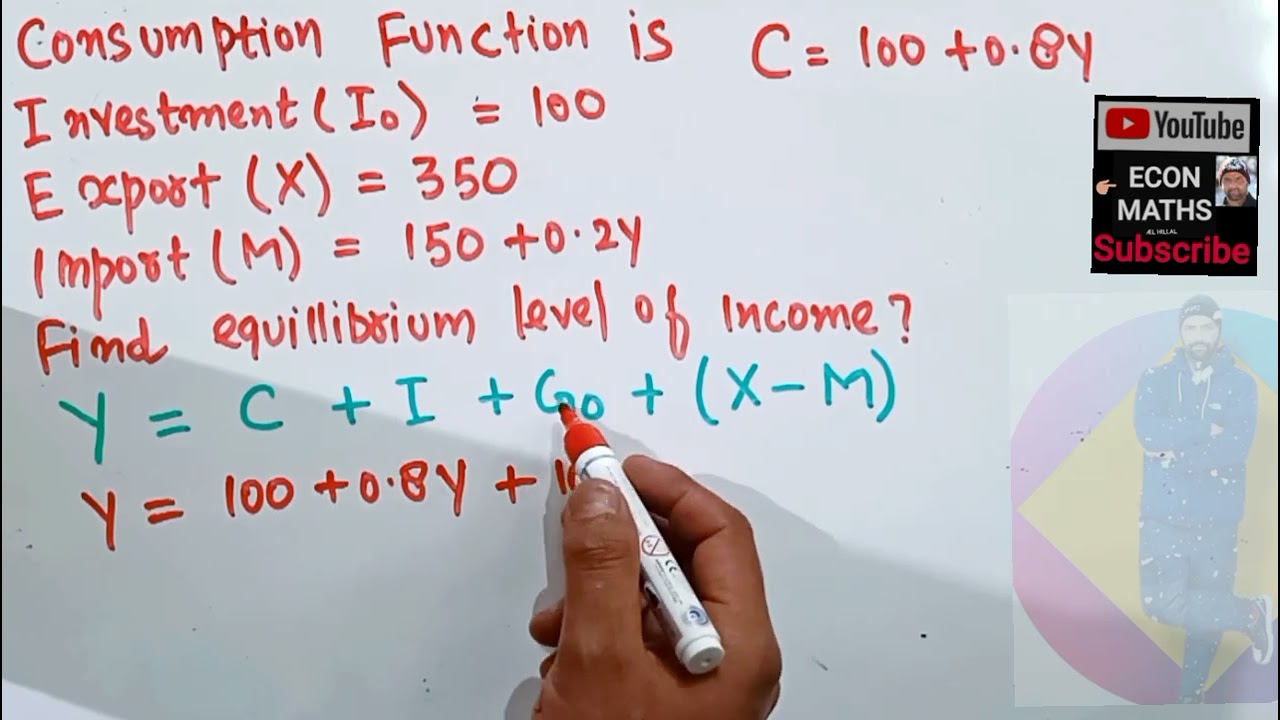 Consumption Function is C = 100 + 0.8Y
Investment (I₀) = 100
Export (X) = 350
Import (M) = 150 + 0.2Y
Find equillibrium level of income?
Y = C + I + G₀ + (X - M)
Y = 100 + 0.8Y +
YouTube
ECON
MATHS
Subscribe